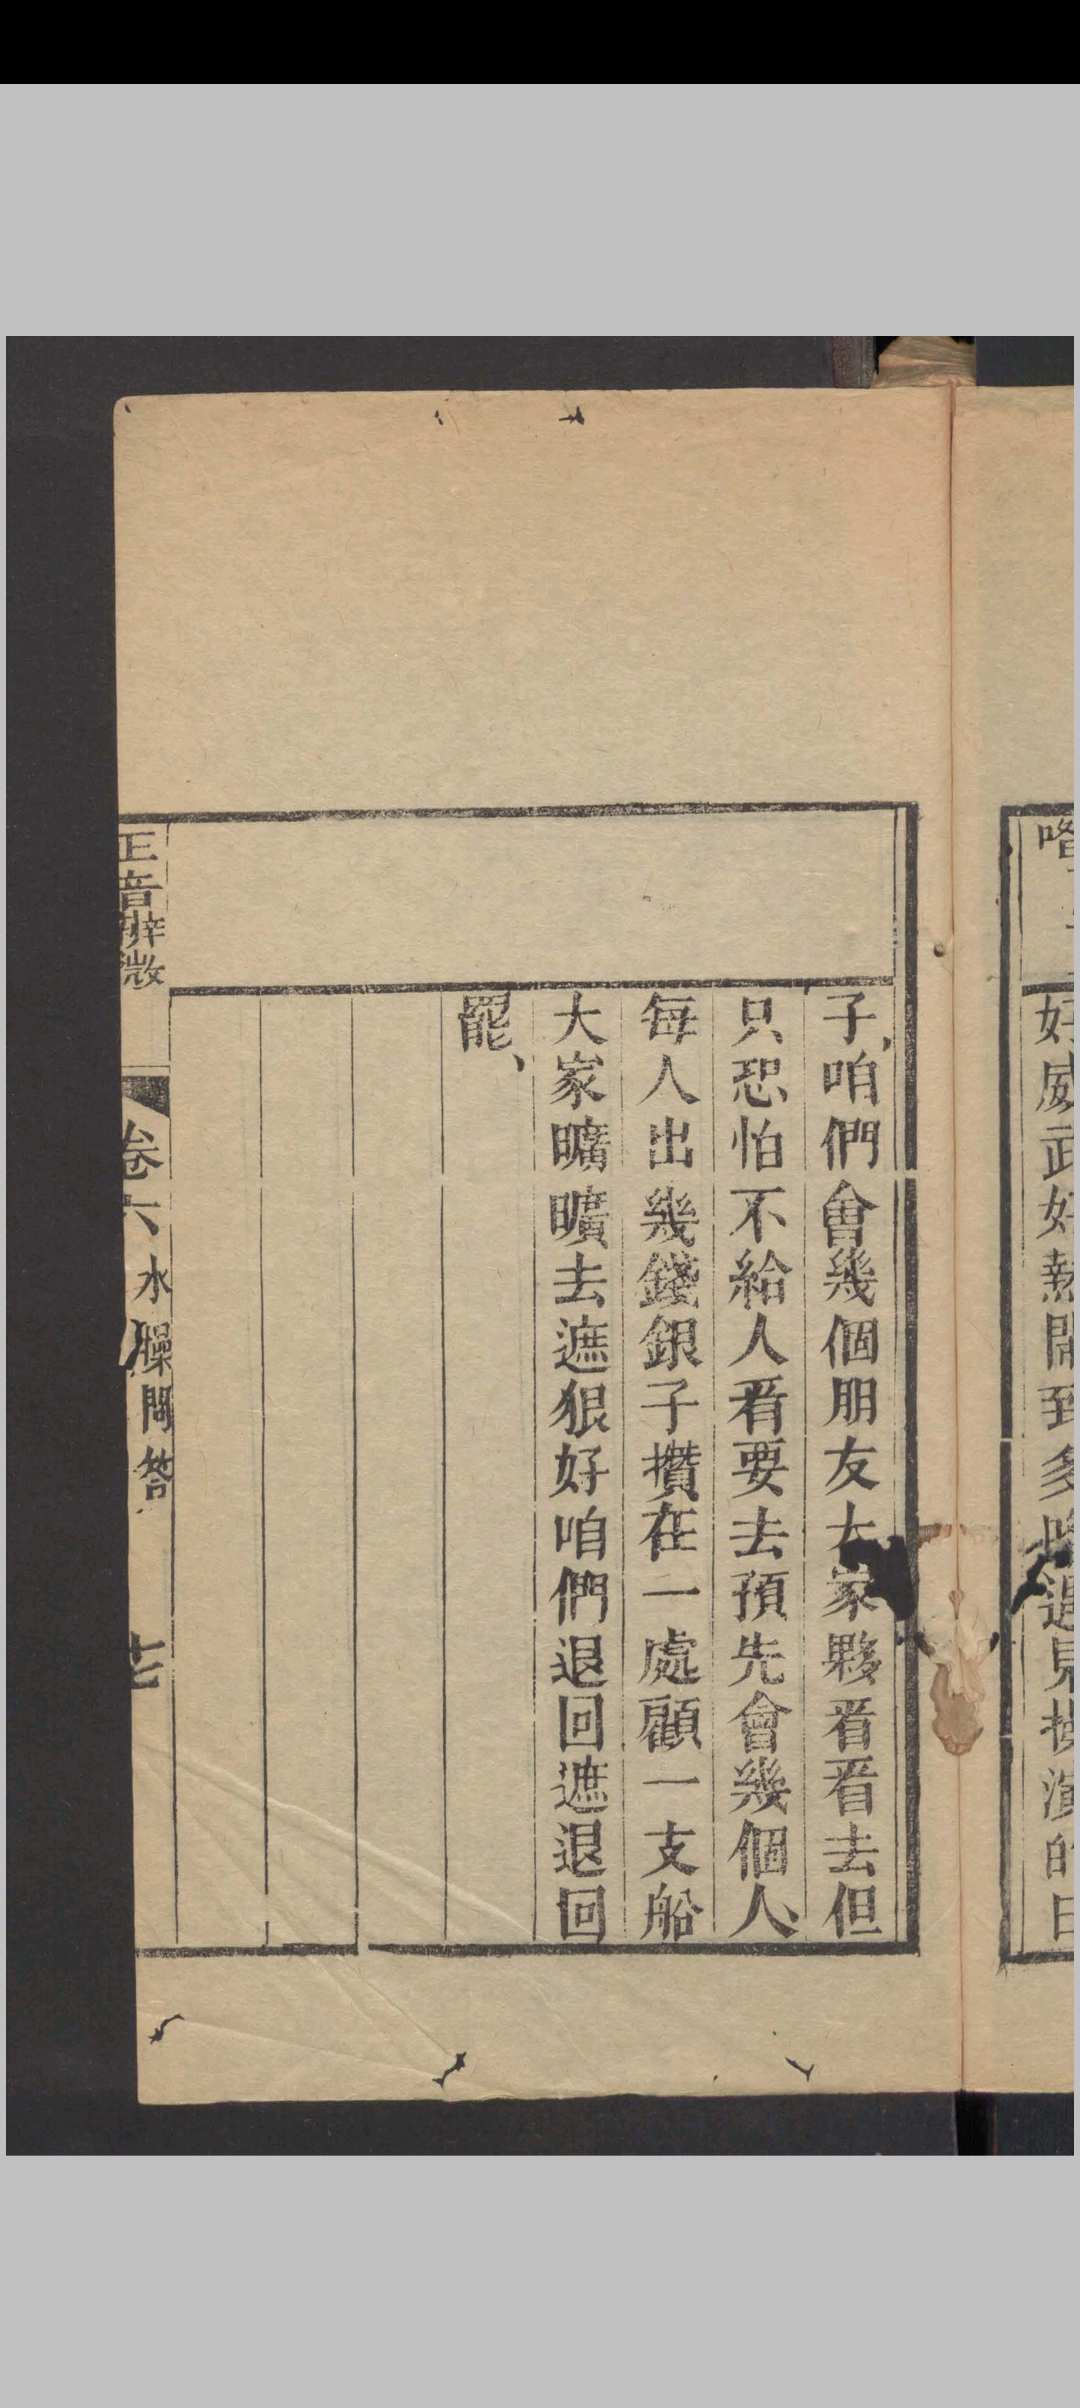 好威武好熱鬧到多
子,咱們會幾個朋友大家夥看看去但
只恐怕不給人看要去預先會幾個人、
每人出幾錢銀子攢在一處顧一支船
大家曠曠去遮狠好咱們退回遮退回
罷、
正音辨微
卷六 水臊問答
十七